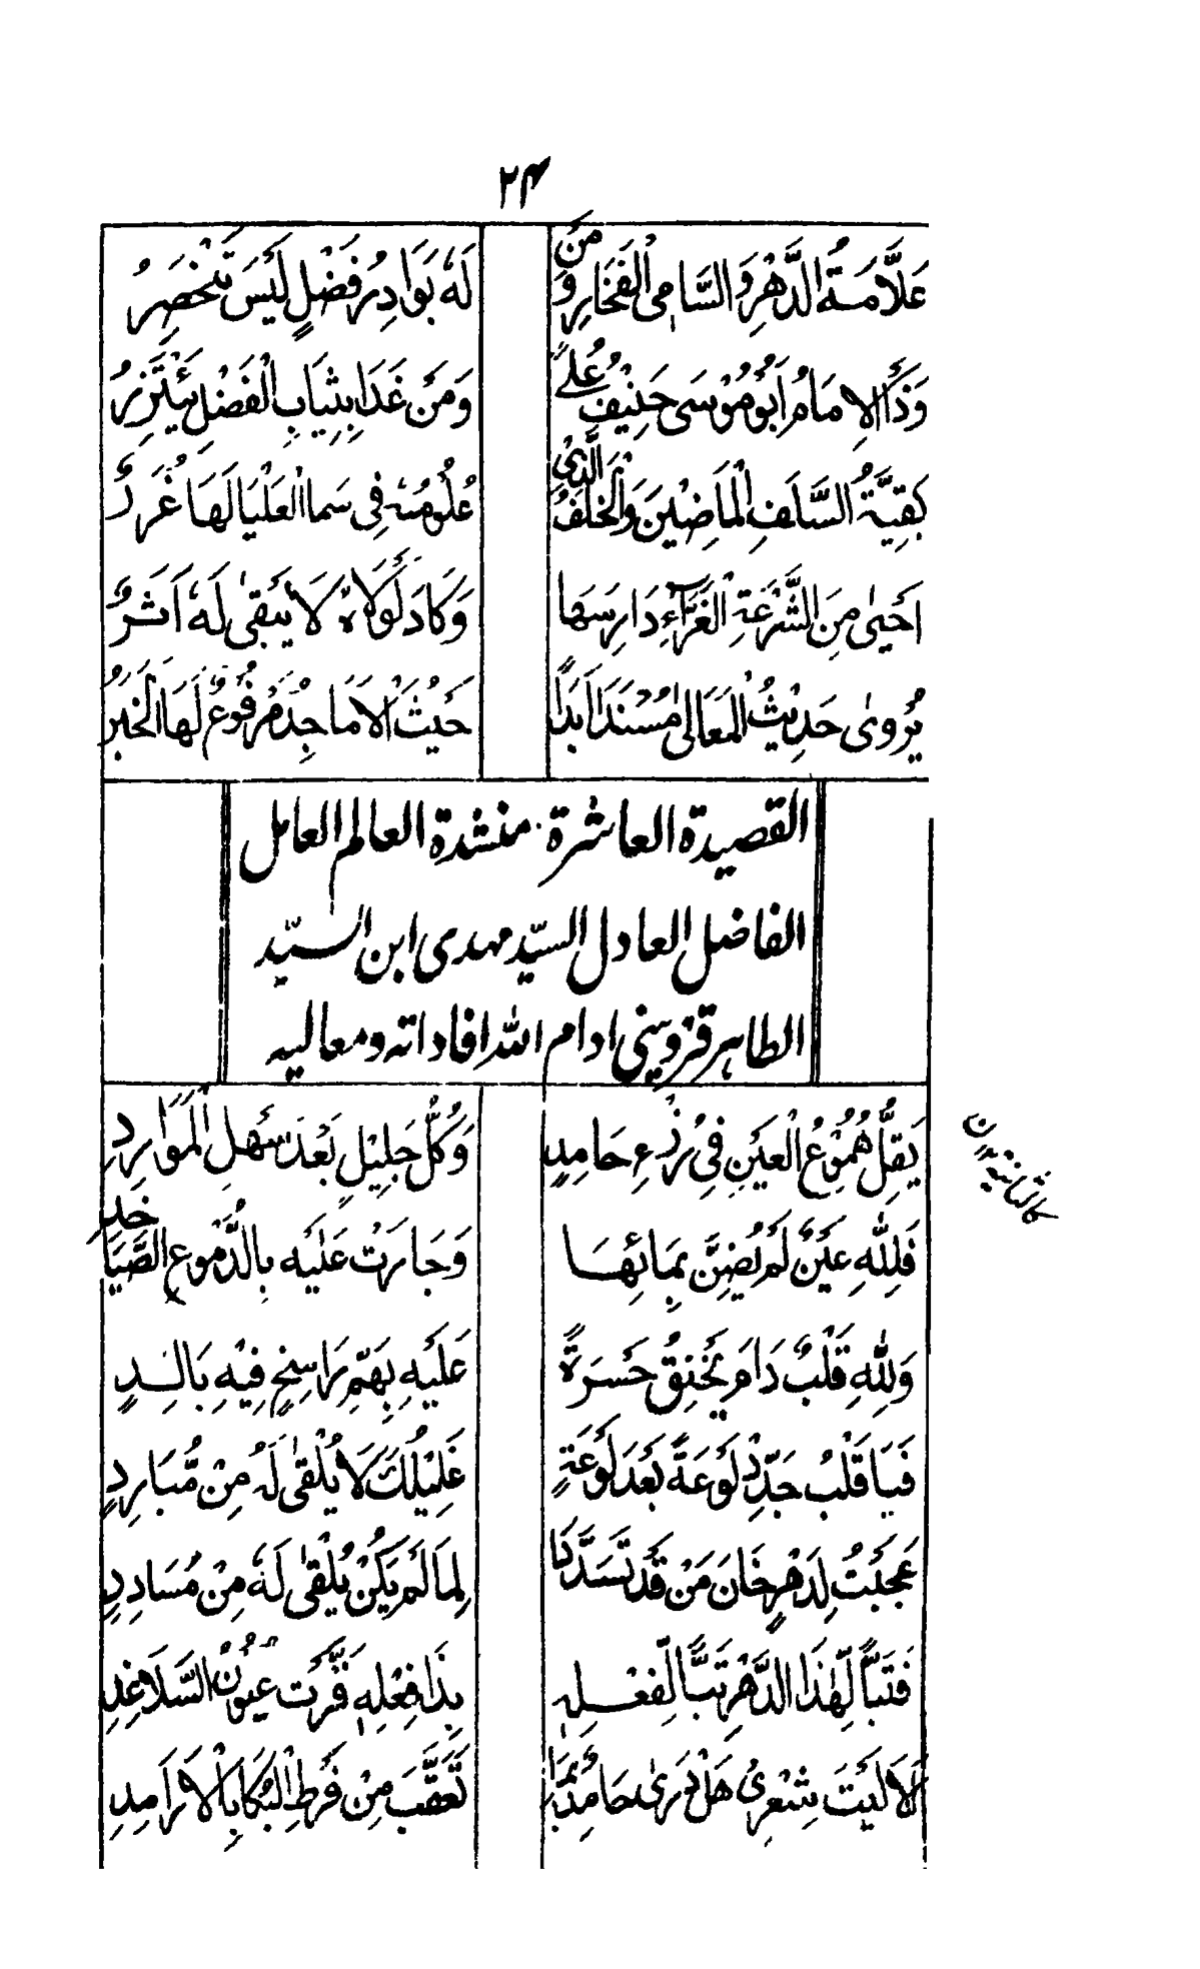 ۲۴
عَلَّامَةُ الدَّهْرِ وَالسَّامِی الْفَخَارِ وَمَنْ لَهٗ بَوَادِرُ فَضْلٍ لَیْسَ تَنْحَصِرُ
وَذَا الْاِمَامُ اَبُوْ مُوْسَی حَنِیْفُ عُلیً وَمَنْ غَدَا بِثِیَابِ الْفَضْلِ یَئْتَزِرُ
بَقِیَّةُ السَّلَفِ الْمَاضِیْنَ وَالْخَلَفُ الَّذِیْ عُلُوْمُهٗ فِی سَمَا الْعَلْیَا لَهَا غُرَرُ
اَحْیٰی مِنَ الشَّرْعَةِ الْغَرَّاءِ دَارِسَهَا وَكَادَ لَوْلَاهُ لَا یَبْقٰی لَهٗ اَثَرُ
یُرْوٰی حَدِیْثُ الْمَعَالِیْ مُسْنَدًا اَبَدًا حَیْثُ الْاَمَاجِدُ مَرْفُوْعٌ لَهَا الْخَبَرُ
القصیدة العاشرة منشدة العالم العامل
الفاضل العادل السیّد مهدی ابن السیّد
الطاهر قزوینی ادام اللّٰه افاداته ومعالیه
یَقِلُّ هُمُوْعُ الْعَیْنِ فِیْ رُزْءِ حَامِدٍ وَكُلُّ جَلِیْلٍ بَعْدَ سَهْلِ الْمَوَارِدِ
فَلِلّٰهِ عَیْنٌ لَمْ یَضِنَّ بِمَائِهَا وَجَارَتْ عَلَیْهِ بِالدُّمُوْعِ الصَّیَاخِدِ
وَلِلّٰهِ قَلْبٌ دَامَ یُخْنِقُ حَسْرَةً عَلَیْهِ بِهَمٍّ رَاسِخٍ فِیْهِ بَالِدٍ
فَیَا قَلْبُ جَدِّدْ لَوْعَةً بَعْدَ لَوْعَةٍ غَلِیْلُكَ لَا یُلْقٰی لَهٗ مِنْ مُّبَارِدٍ
عَجِبْتُ لِدَهْرٍ خَانَ مَنْ قَدْ تَسَدَّدَا لِمَا لَمْ یَكُنْ یُلْقٰی لَهٗ مِنْ مُسَادِدٍ
فَتَبًّا لِّهٰذَا الدَّهْرِ تَبًّا لِّفِعْلِهٖ بِذَا فِعْلِهٖ قَرَّتْ عُیُوْنُ السَّلَاغِدِ
اَلَا لَیْتَ شِعْرِیْ هَلْ دَرٰی حَامِدٌ بِمَا تَعَقَّبَ مِنْ فَرْطِ الْبُكَا بِالْاَرَامِدِ